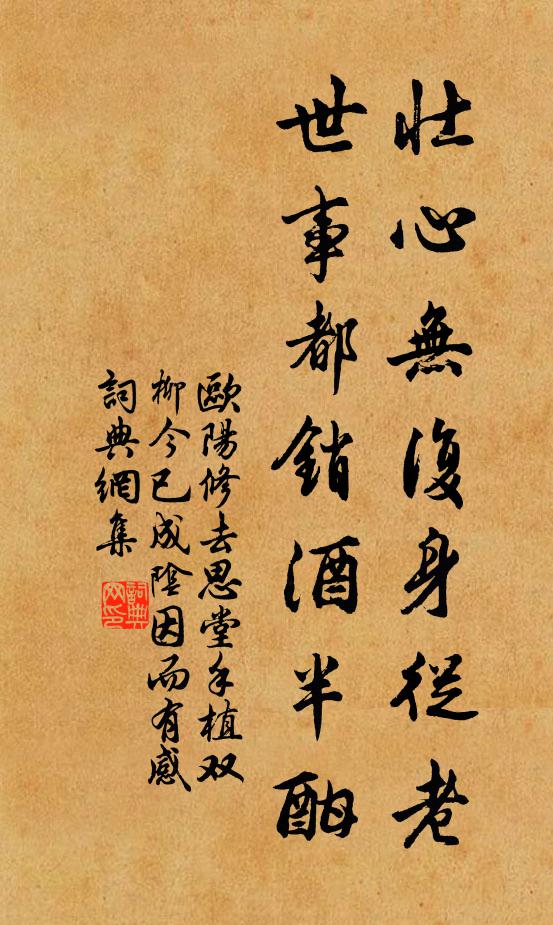 壯心無復身從老
世事都銷酒半酣
歐陽修去思堂手植双
柳今已成陰因而有感
詞典網集
詞典
网印